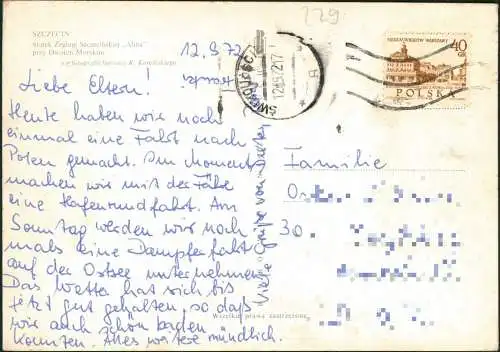 229
SZCZECIN
Statek Żeglugi Szczecińskiej „Alina”
przy Dworcu Morskim
12.9.72
ŚWINOUJŚCIE
12.9.72 17
B
NIEZWYCIĘŻONEJ WARSZAWY
40
GR
POLSKA
Liebe Eltern!
Heute haben wir noch
einmal eine Fahrt nach
Polen gemacht. Im Moment
machen wir mit der Fähre
eine Hafenrundfahrt. Am
Sonntag werden wir noch
mals eine Dampferfahrt
auf der Ostsee unternehmen.
Das Wetter hat sich bis
jetzt gut gehalten, so daß
wir auch schon baden
konnten. Alles weitere mündlich.
Viele Grüße von
Familie
O
30
Wszelkie prawa zastrzeżone